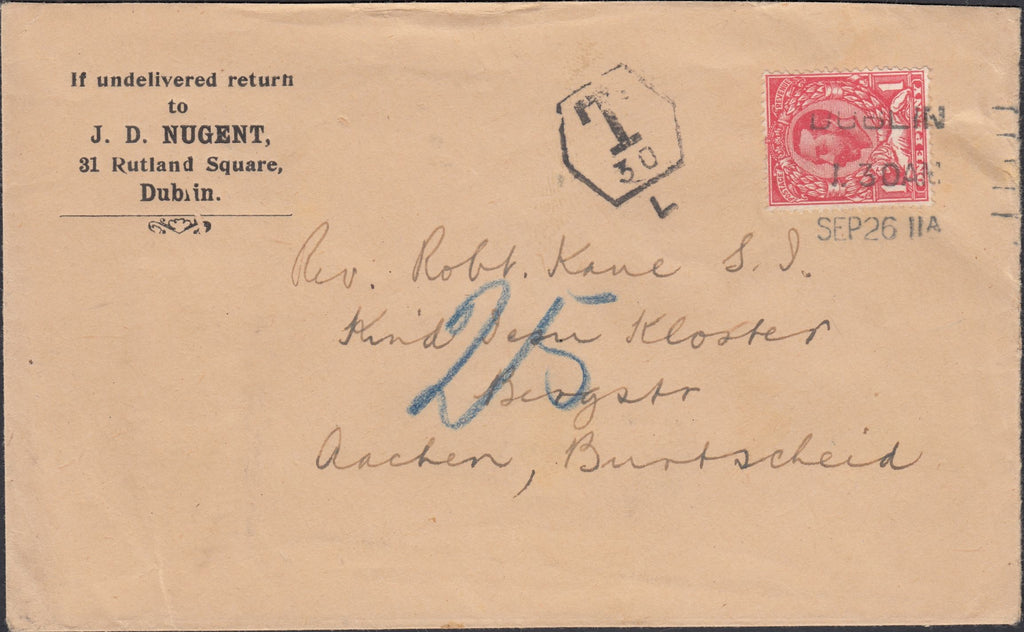 If undelivered return
to
J. D. NUGENT,
31 Rutland Square,
Dublin.
T
30
L
1 1
DUBLIN
1. 30AM
SEP 26 11A
Rev. Robt. Kane S. J.
Kind Jesu Kloster
25
Bergstr
Aachen, Burtscheid